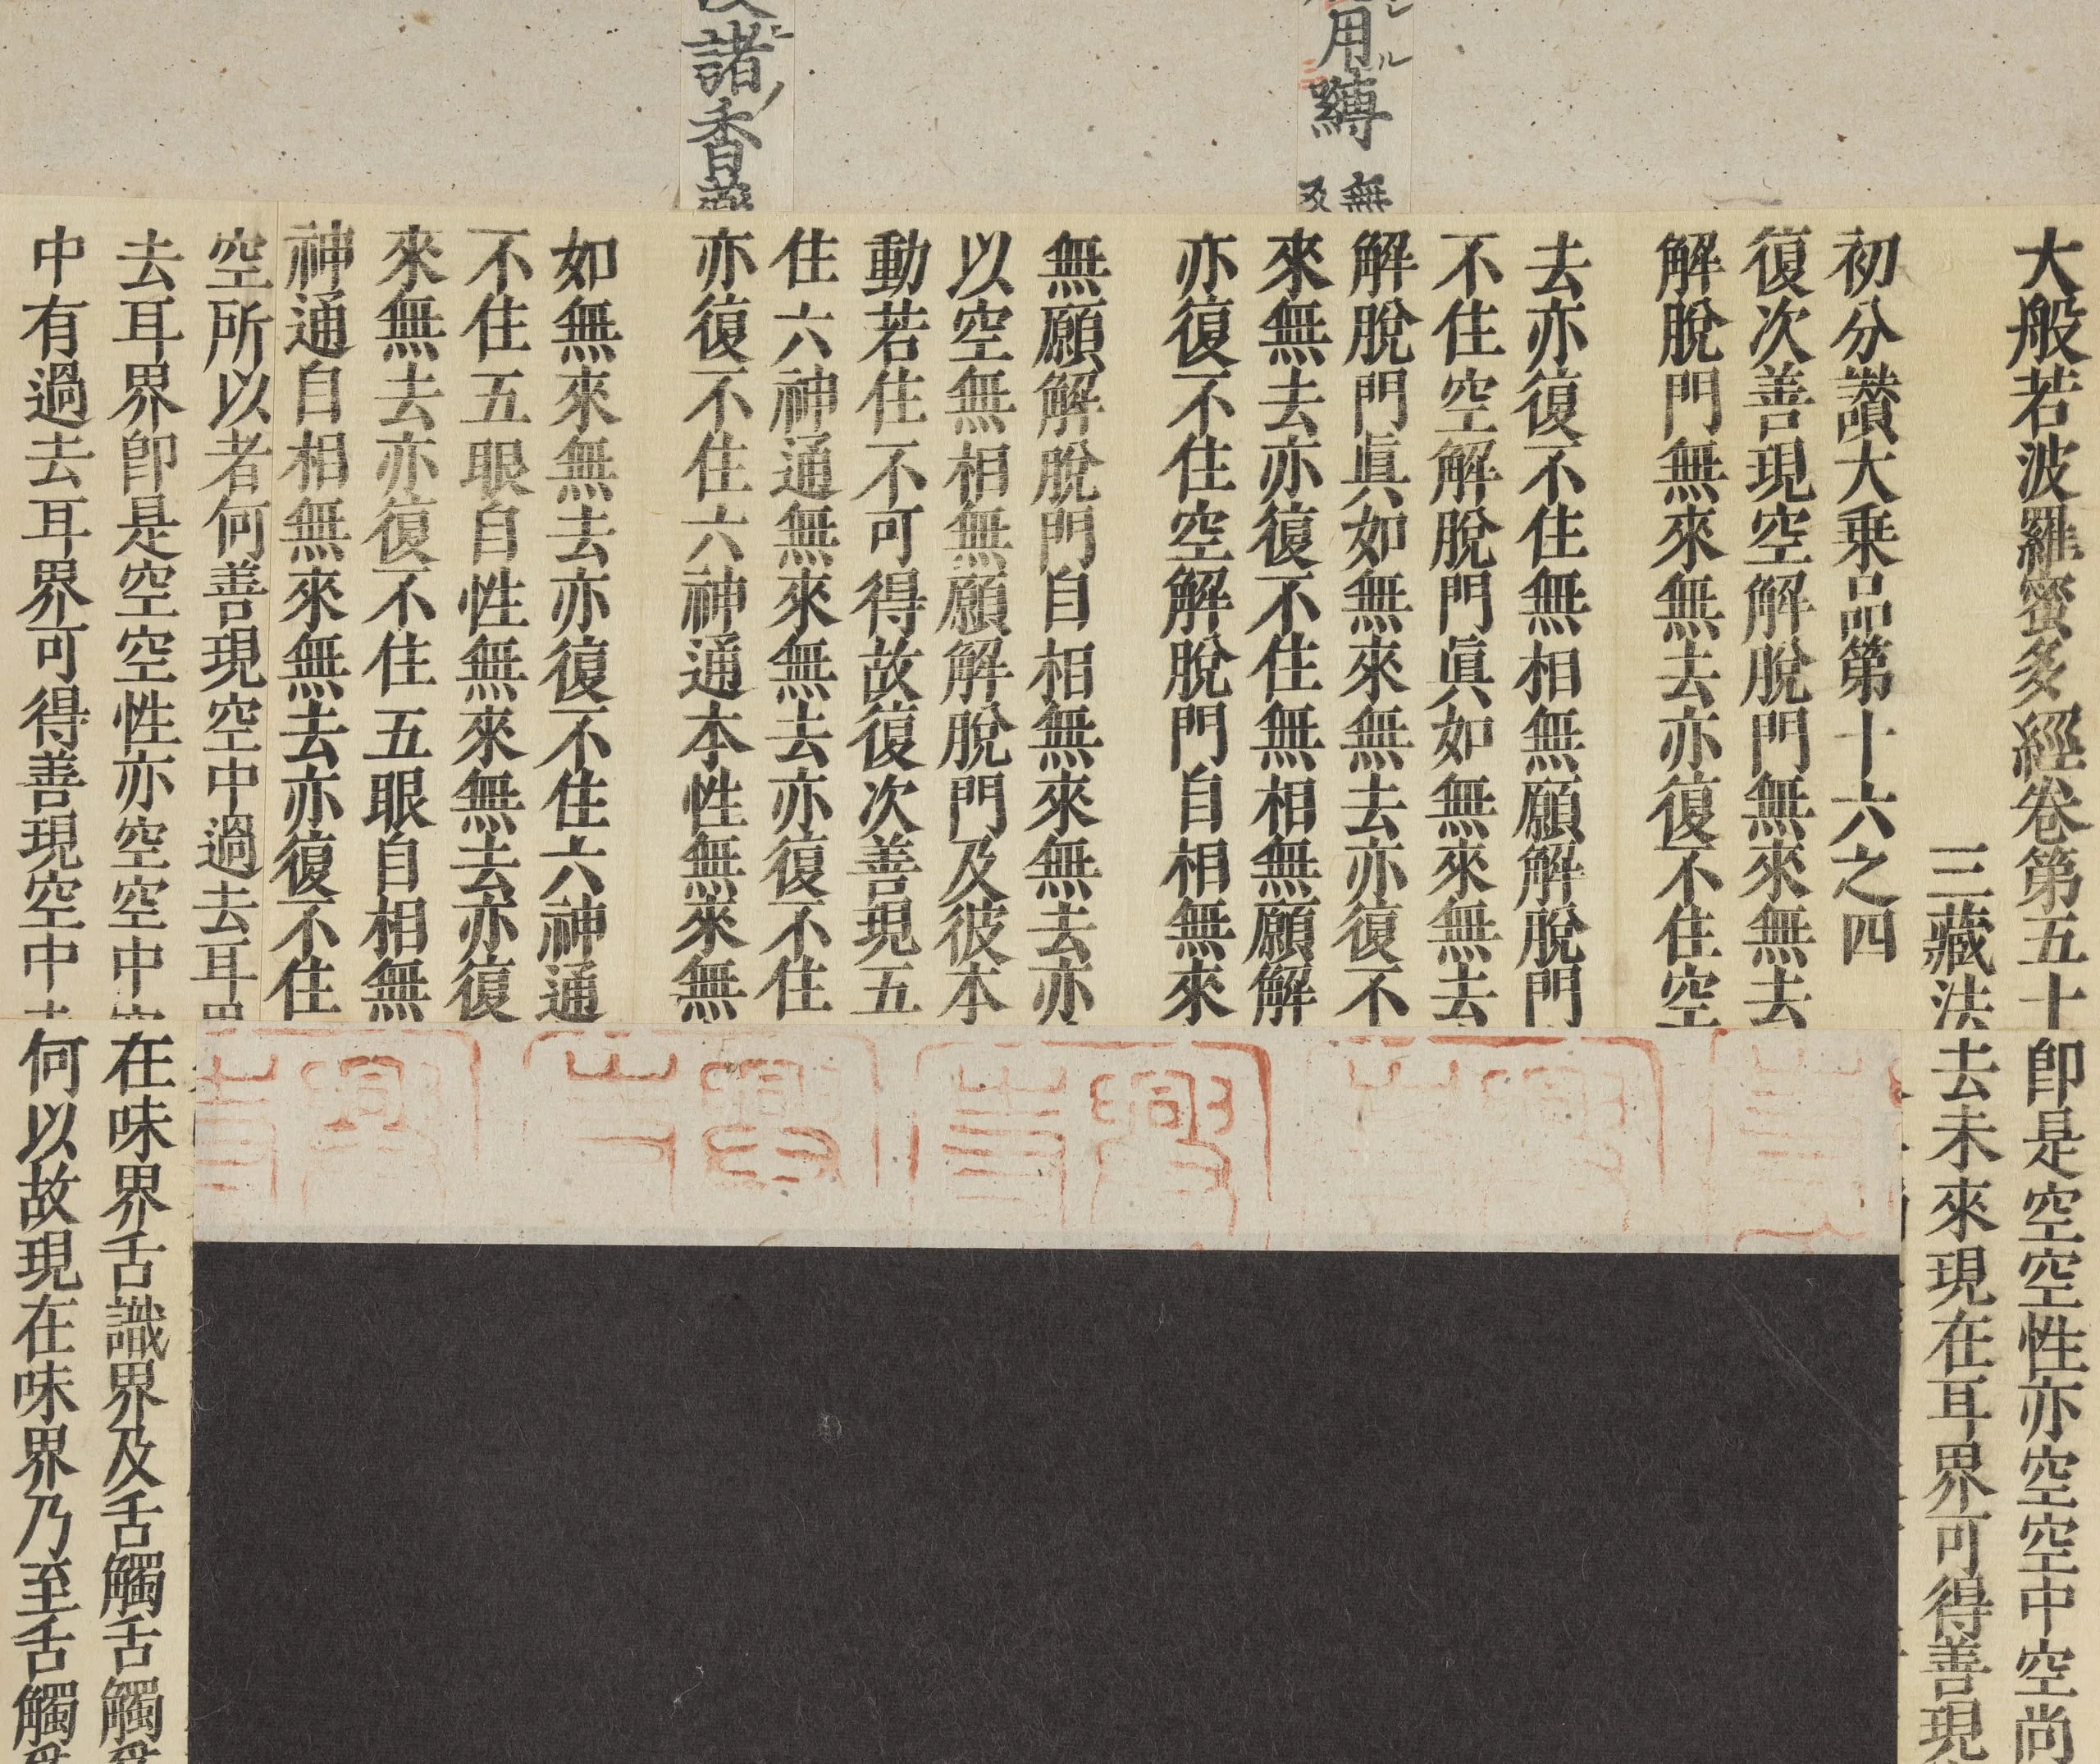 諸香
用縛
無
及
大般若波羅蜜多經卷第五十
三藏法
初分讚大乗品第十六之四
復次善現空解脫門無來無去
解脫門無來無去亦復不住空
去亦復不住無相無願解脫門
不住空解脫門眞如無來無去
解脫門眞如無來無去亦復不
來無去亦復不住無相無願解
亦復不住空解脫門自相無來
無願解脫門自相無來無去亦
以空無相無願解脫門及彼本
動若住不可得故復次善現五
住六神通無來無去亦復不住
亦復不住六神通本性無來無
如無來無去亦復不住六神通
不住五眼自性無來無去亦復
來無去亦復不住五眼自相無
神通自相無來無去亦復不住
空所以者何善現空中過去耳界
去耳界卽是空空性亦空空中
中有過去耳界可得善現空中
卽是空空性亦空空中空尚
去未來現在耳界可得善現
在味界舌識界及舌觸舌觸
何以故現在味界乃至舌觸